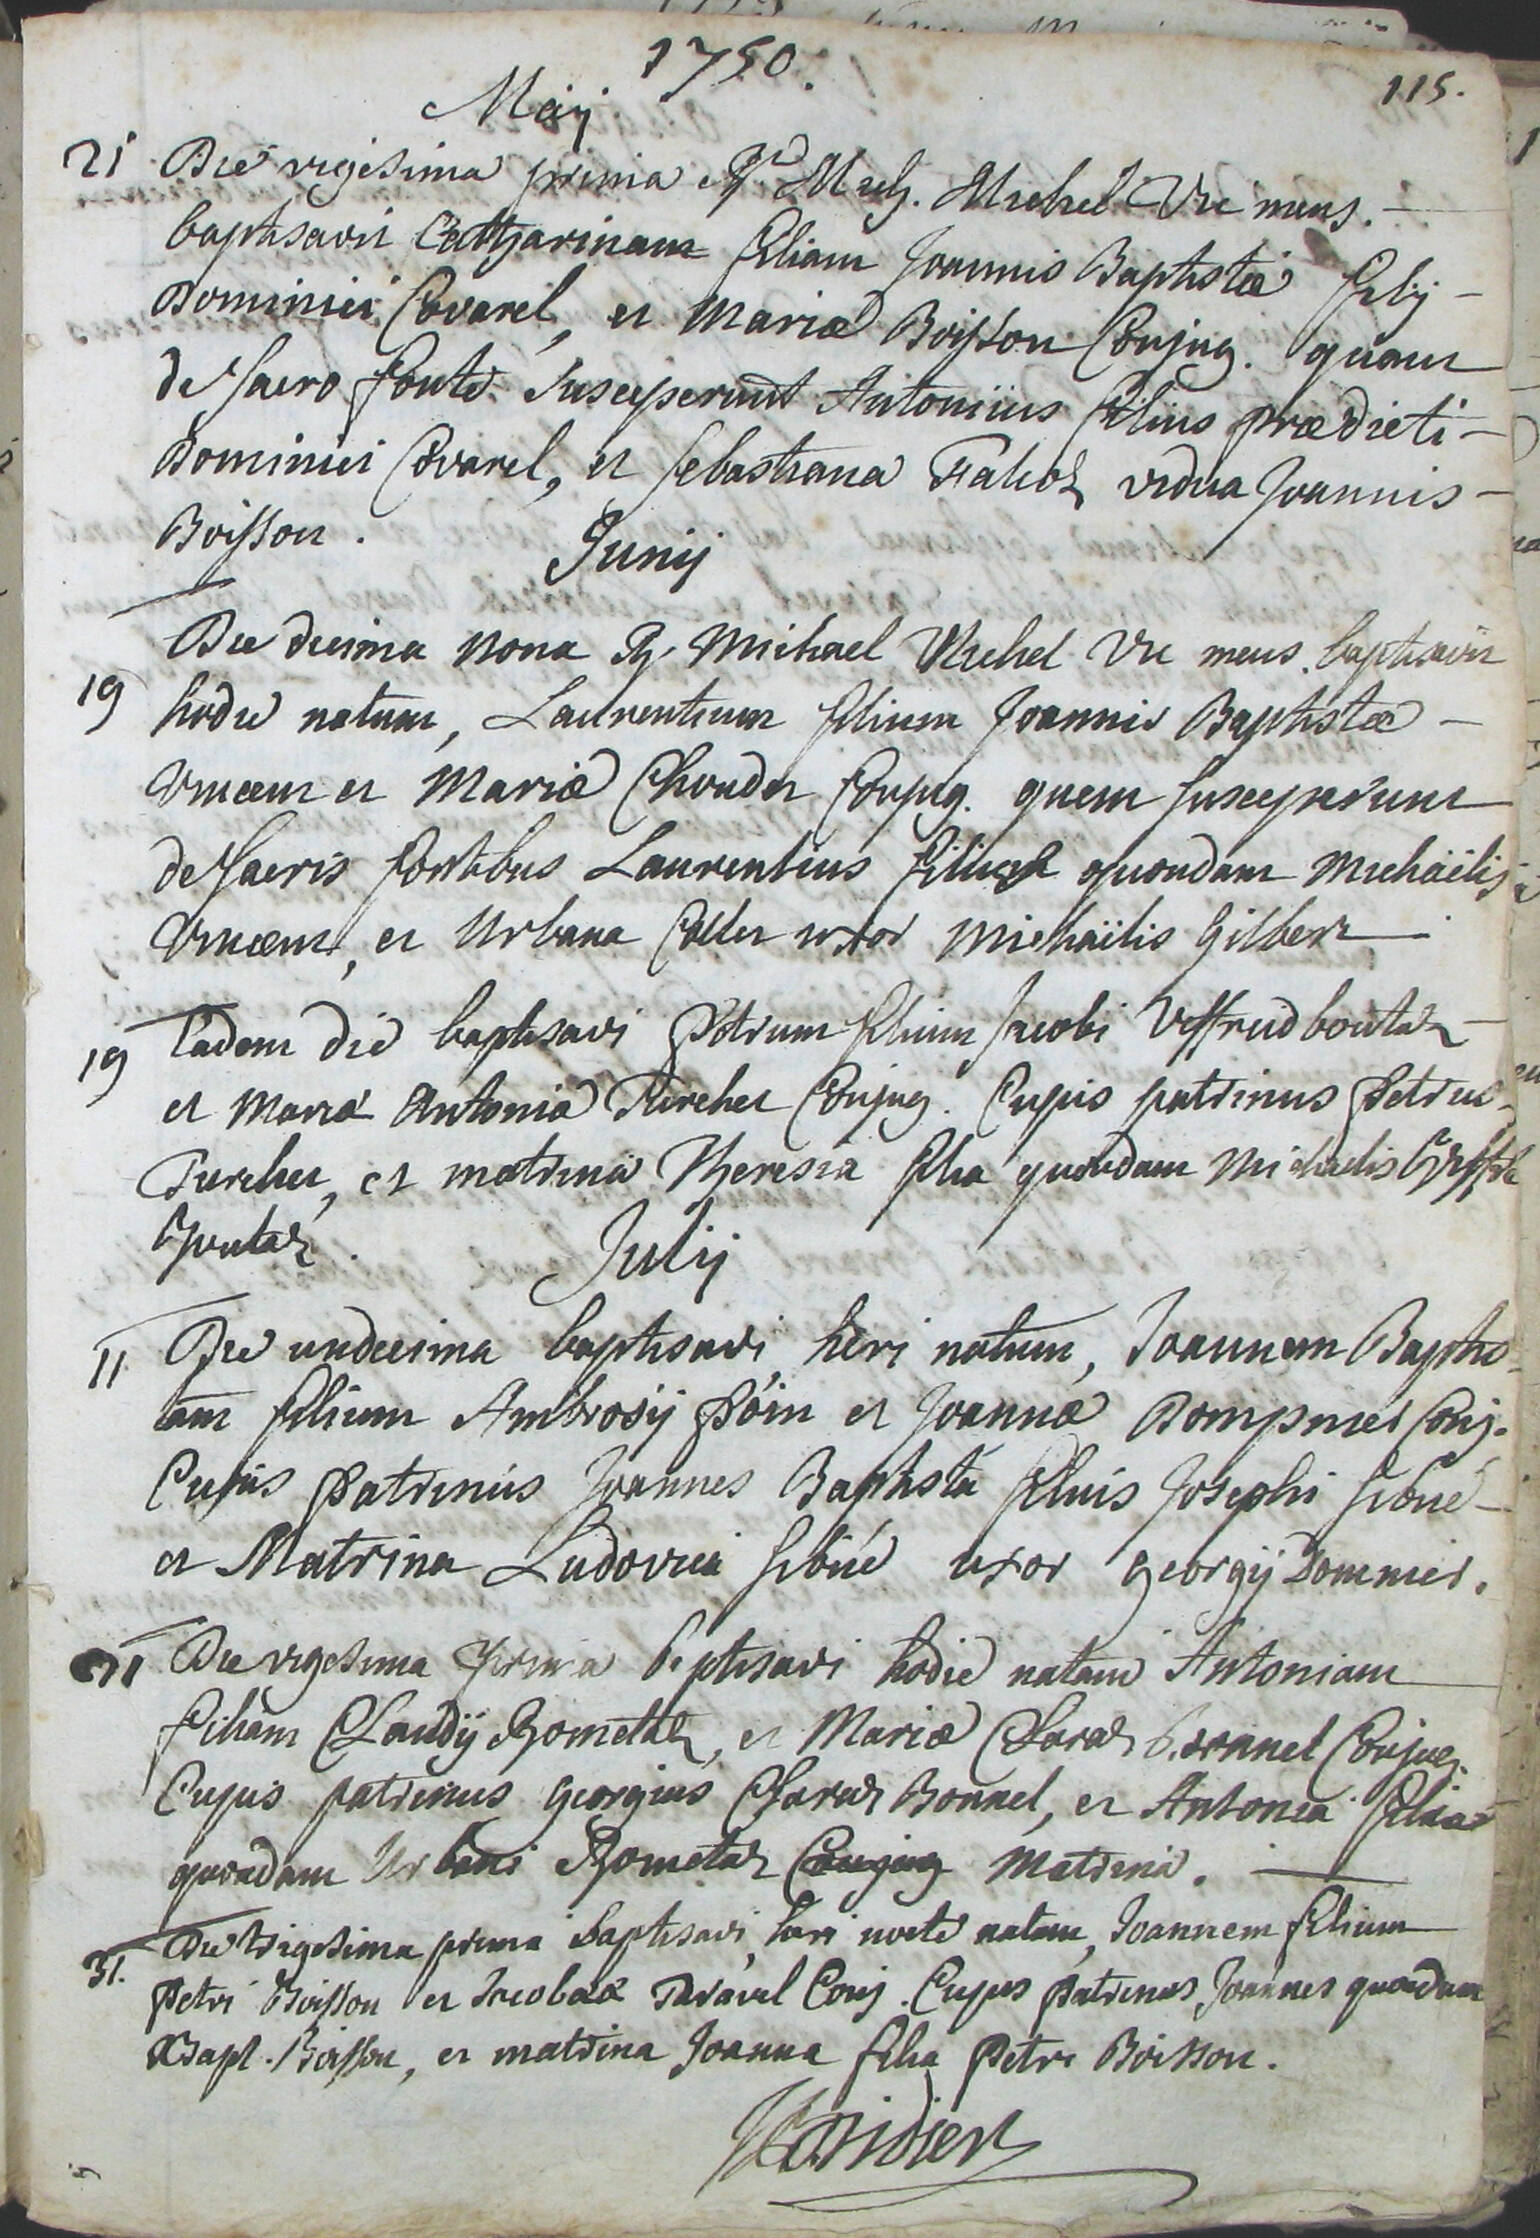 1750.
115.
Maij
21 Die vigesima prima Rd. Mich. Michel Vic meus.
baptisavit Catharinam filiam Joannis Baptistæ filij
Dominici Covarel, et Mariæ Boisson Conjug. quam
de sacro fonte susceperunt Antonius filius prædicti
Dominici Covarel, et Sebastiana vidua Joannis
Boisson.
Junij
Die decima nona R. Michael Michel Vic meus baptisavit
19 hodie natum, Laurentium filium Joannis Baptistæ
et Mariæ Conjug. quem susceperunt
de sacris fontibus Laurentius filius quondam Michaëlis
et Urbana uxor Michaëlis Gilbert
19 Eadem die baptisavi Petrum filium Jacobi
et Mariæ Antoniæ Conjug. Cujus patrinus Petrus
et matrina Theresia filia quondam Michaelis
Julij
11 Die undecima baptisavi, heri natum, Joannem Baptis-
tam filium Ambrosij et Joannæ Conj.
Cujus Patrinus Joannes Baptista filius Josephi Sibué
et Matrina Ludovica Sibué uxor Georgij
21 Die vigesima prima baptisavi hodie natam Antoniam
filiam Claudij Rometaz, et Mariæ Claraz Bonnel Conjug.
Cujus patrinus Georgius Claraz Bonnel, et Antonia filia
quondam Urbani Rometaz Conjug Matrina.
31. Die trigesima prima baptisavi, heri nocte natum, Joannem filium
Petri Boisson et Jacobææ Conj. Cujus Patrinus Joannes quondam
Bapt. Boisson, et matrina Joanna filia Petri Boisson.